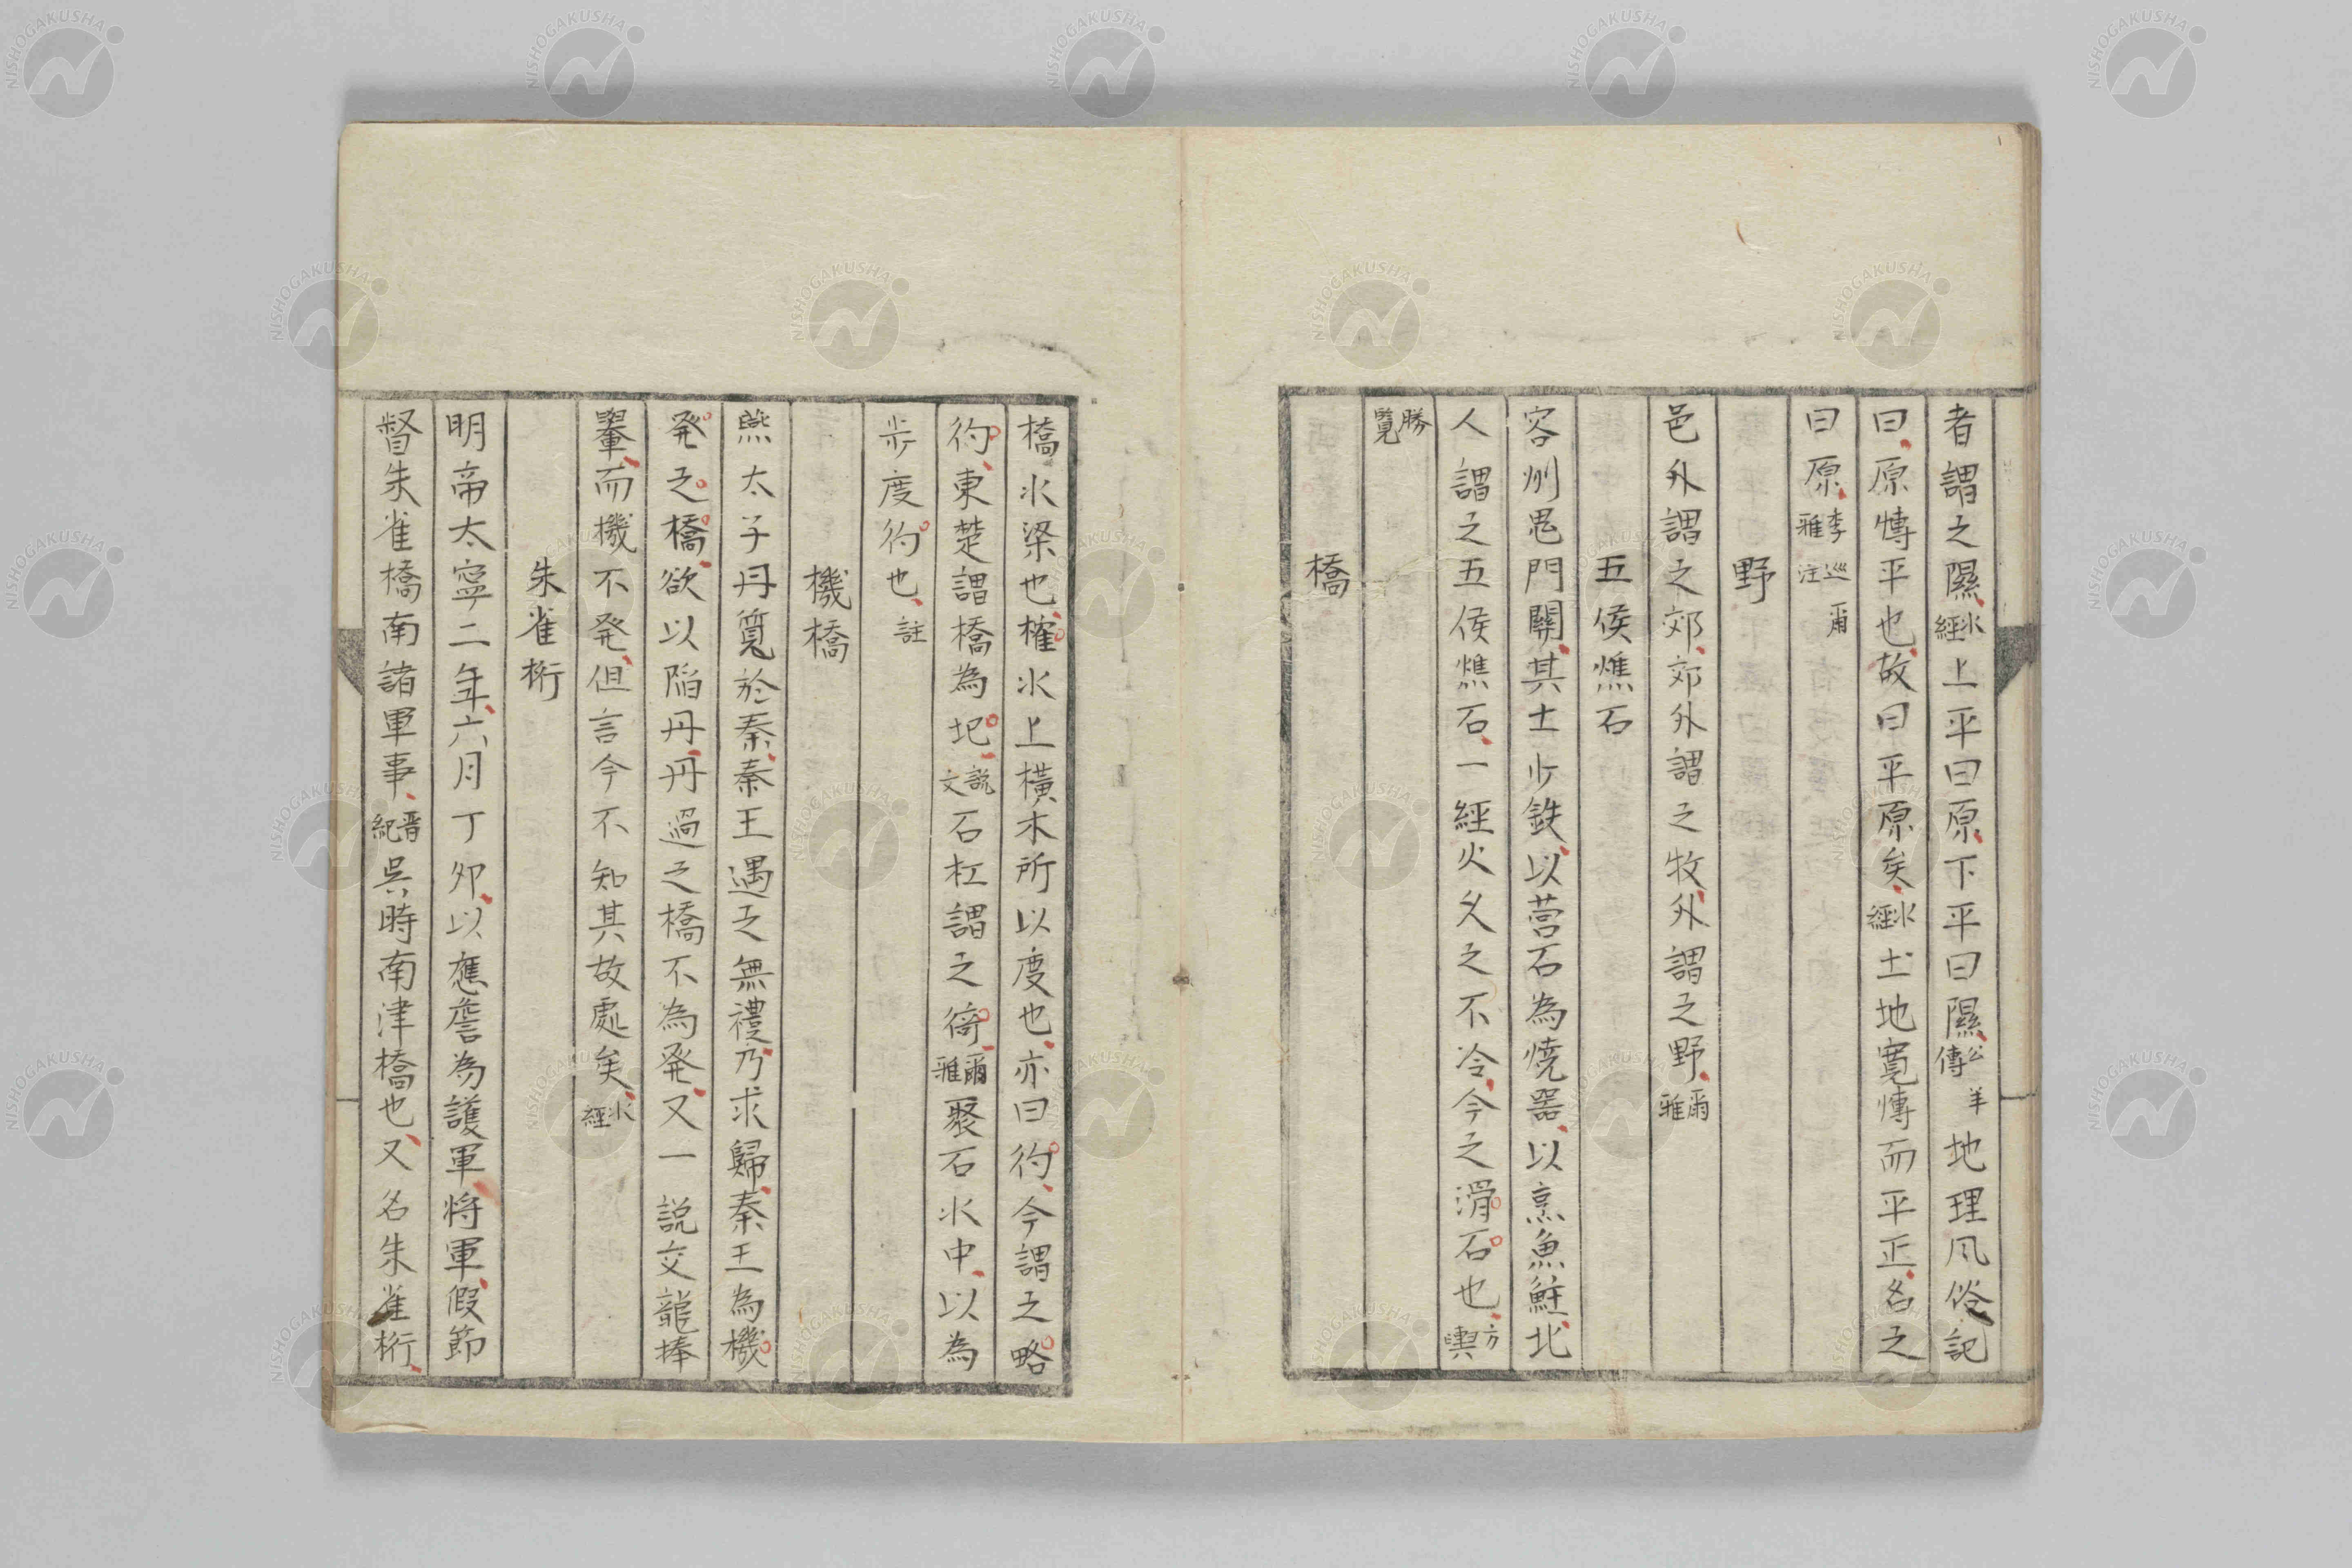 者謂之隰水經上平曰原下平曰隰公羊傳地理風俗記
曰原博平也故曰平原矣水經土地寛博而平正名之
曰原李巡爾雅注
野
邑外謂之郊郊外謂之牧外謂之野爾雅
五侯燋石
容州鬼門關其土少鉄以营石為焼器以烹魚鮭北
人謂之五侯燋石一經火久之不冷今之滑石也方輿
勝覽
橋
橋水梁也榷水上橫木所以度也亦曰彴今謂之略
彴東楚謂橋為圯説文石杠謂之徛爾雅聚石水中以為
步度彴也註
機橋
燕太子丹質於秦秦王遇之無禮乃求歸秦王為機
発之橋欲以陷丹丹過之橋不為発又一説交龍捧
轝而機不発但言今不知其故處矣水經
朱雀桁
明帝太寧二年六月丁卯以應詹為護軍将軍假節
督朱雀橋南諸軍事晋紀吳時南津橋也又名朱雀桁
NISHOGAKUSHA